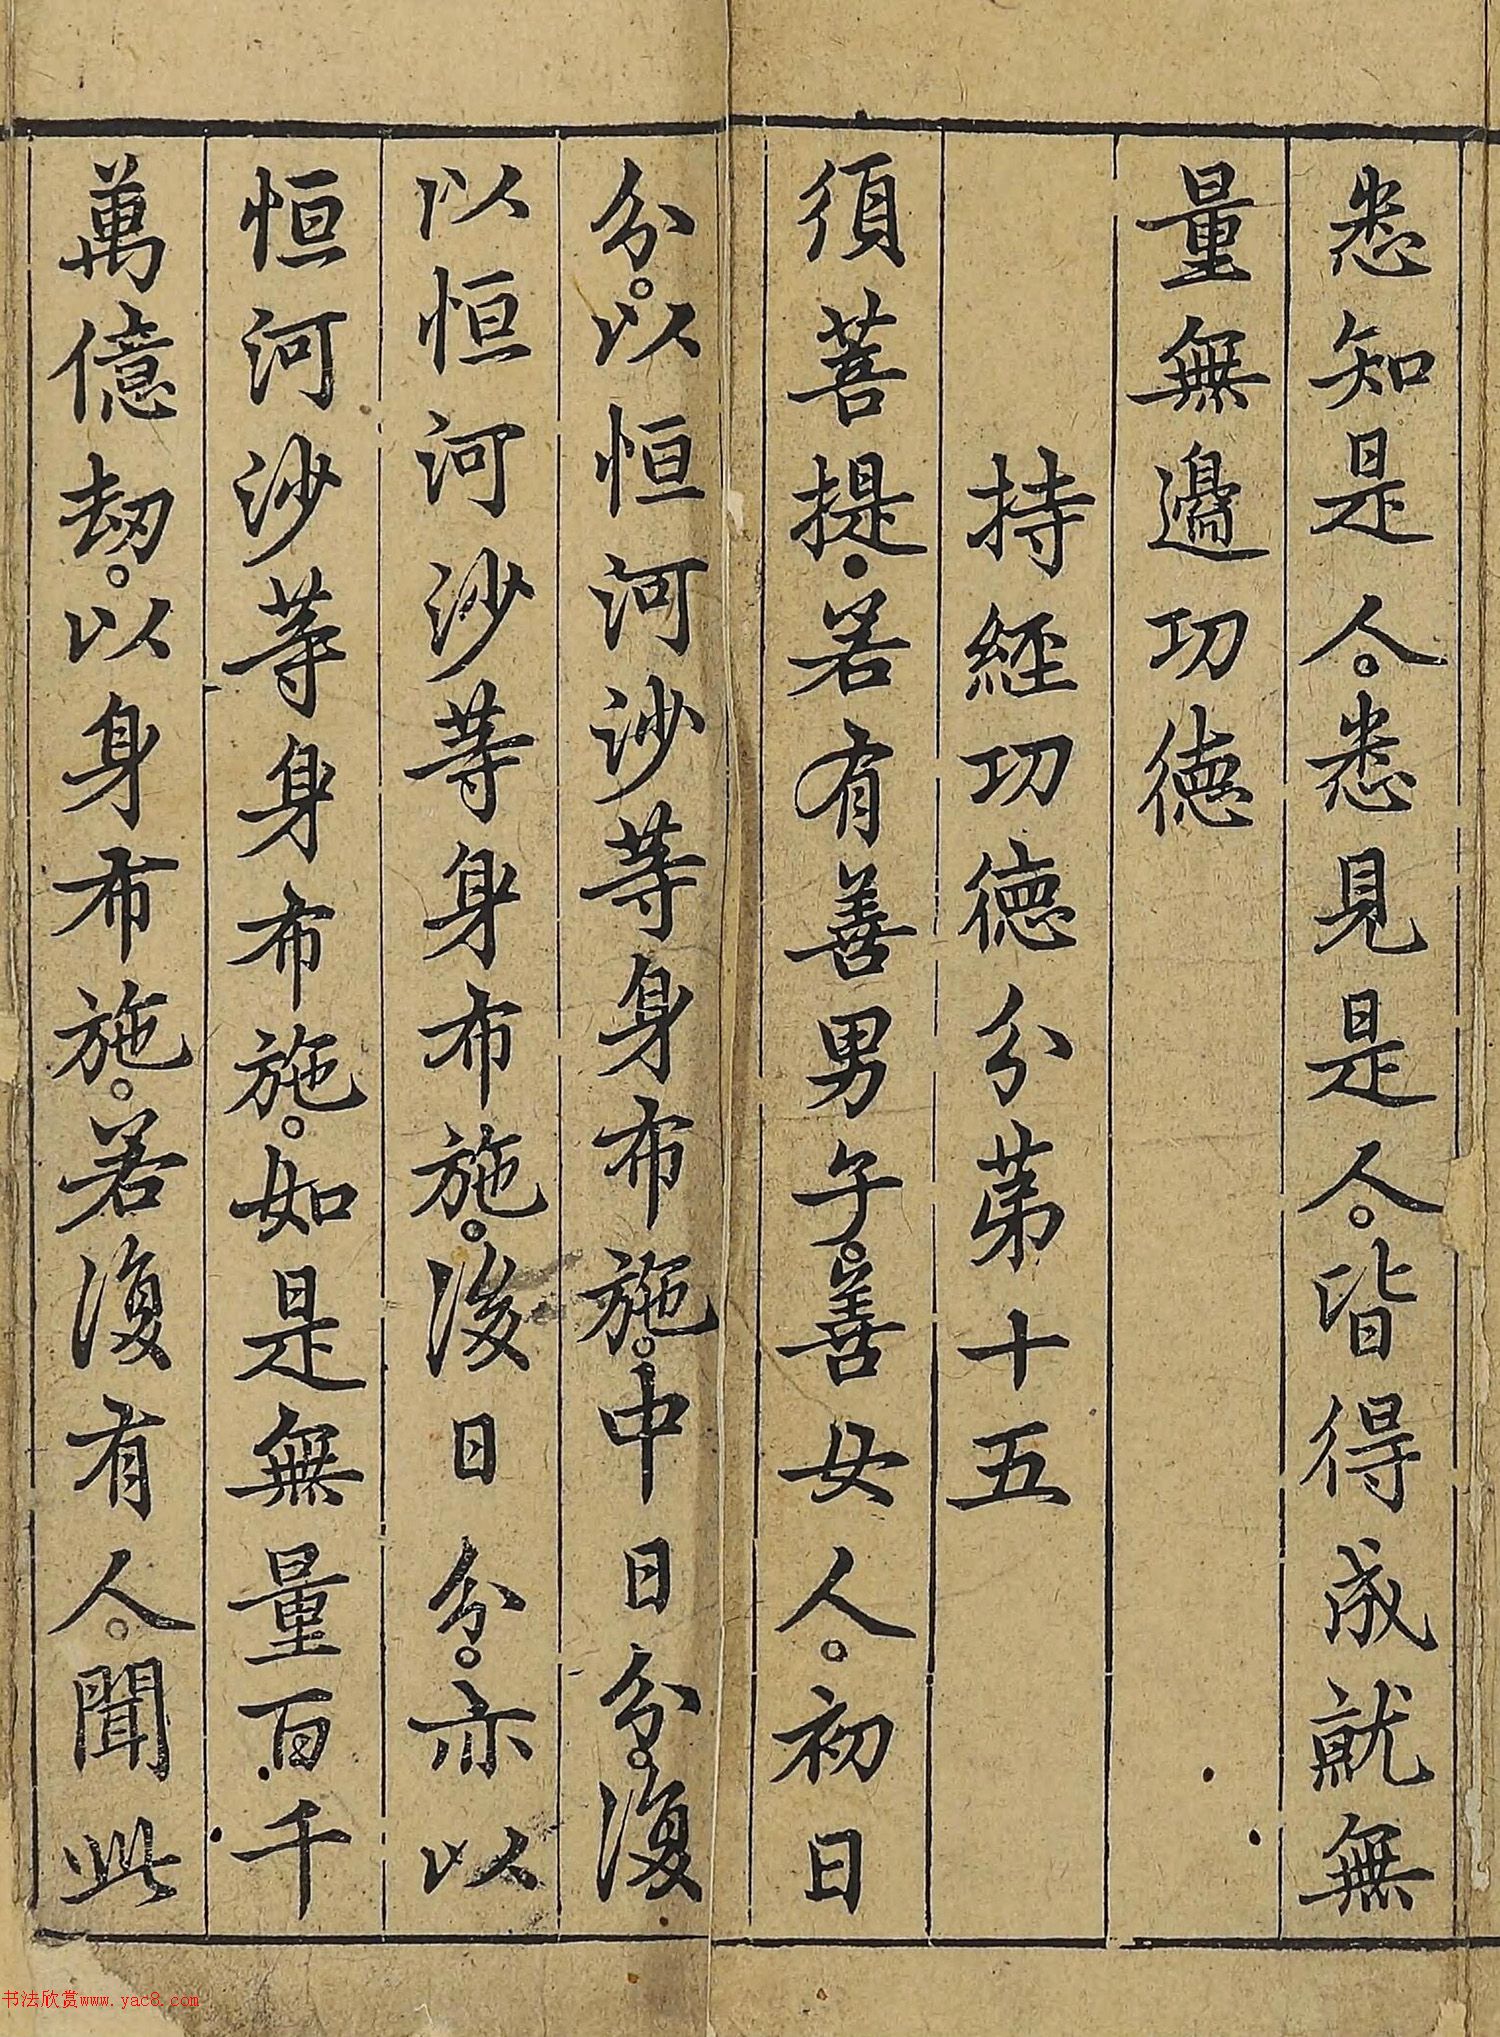 悉知是人。悉見是人。皆得成就無
量無邊功德
持經功德分第十五
須菩提。若有善男子。善女人。初日
分。以恒河沙等身布施。中日分。復
以恒河沙等身布施。後日分。亦以
恒河沙等身布施。如是無量百千
萬億劫。以身布施。若復有人。聞此
书法欣赏www.yac8.com